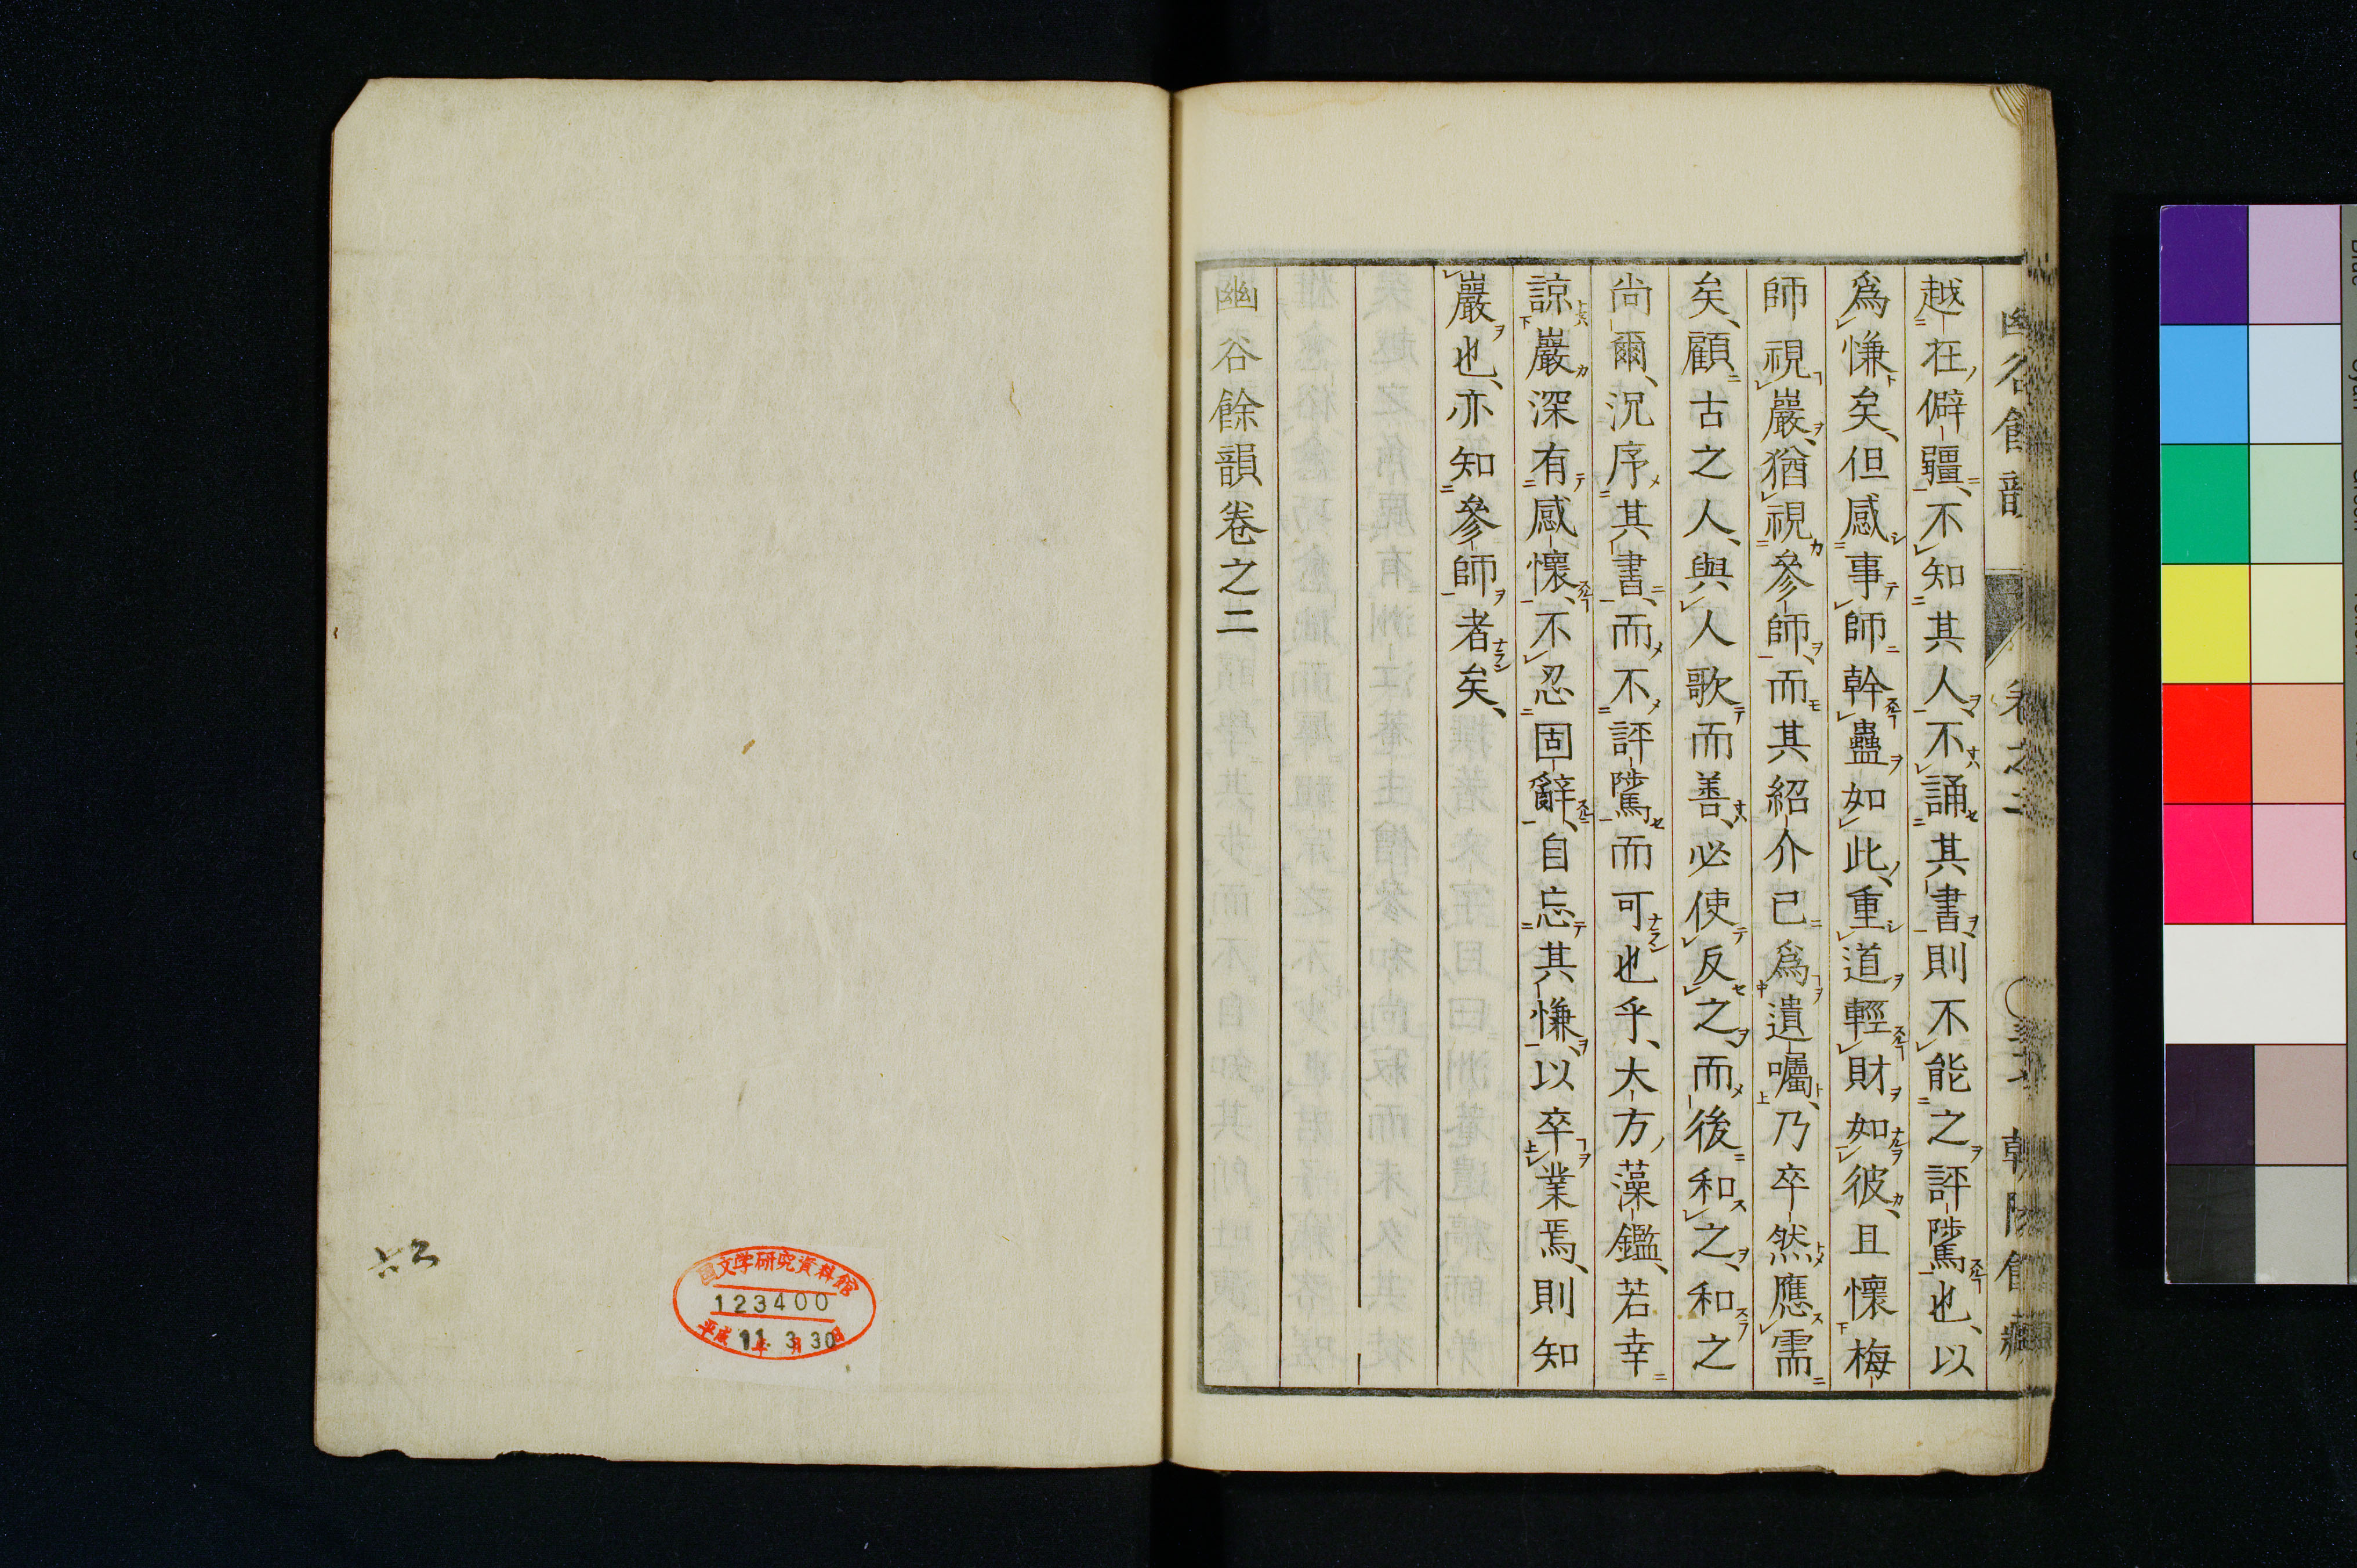 越在僻疆、不知其人、不誦其書、則不能之評隲也、以
爲慊矣、但感事師幹蠱如此、重道輕財如彼、且懷梅
師視巖、猶視參師、而其紹介已爲遺囑、乃卒然應需
矣、顧古之人、與人歌而善、必使反之、而後和之、和之
尚爾、況序其書、而不評隲而可也乎、大方藻鑑、若幸
諒巖深有感懷、不忍固辭、自忘其慊、以卒業焉、則知
巖也、亦知參師者矣、
幽谷餘韻卷之二
国文学研究資料館
123400
平成11年3月30日